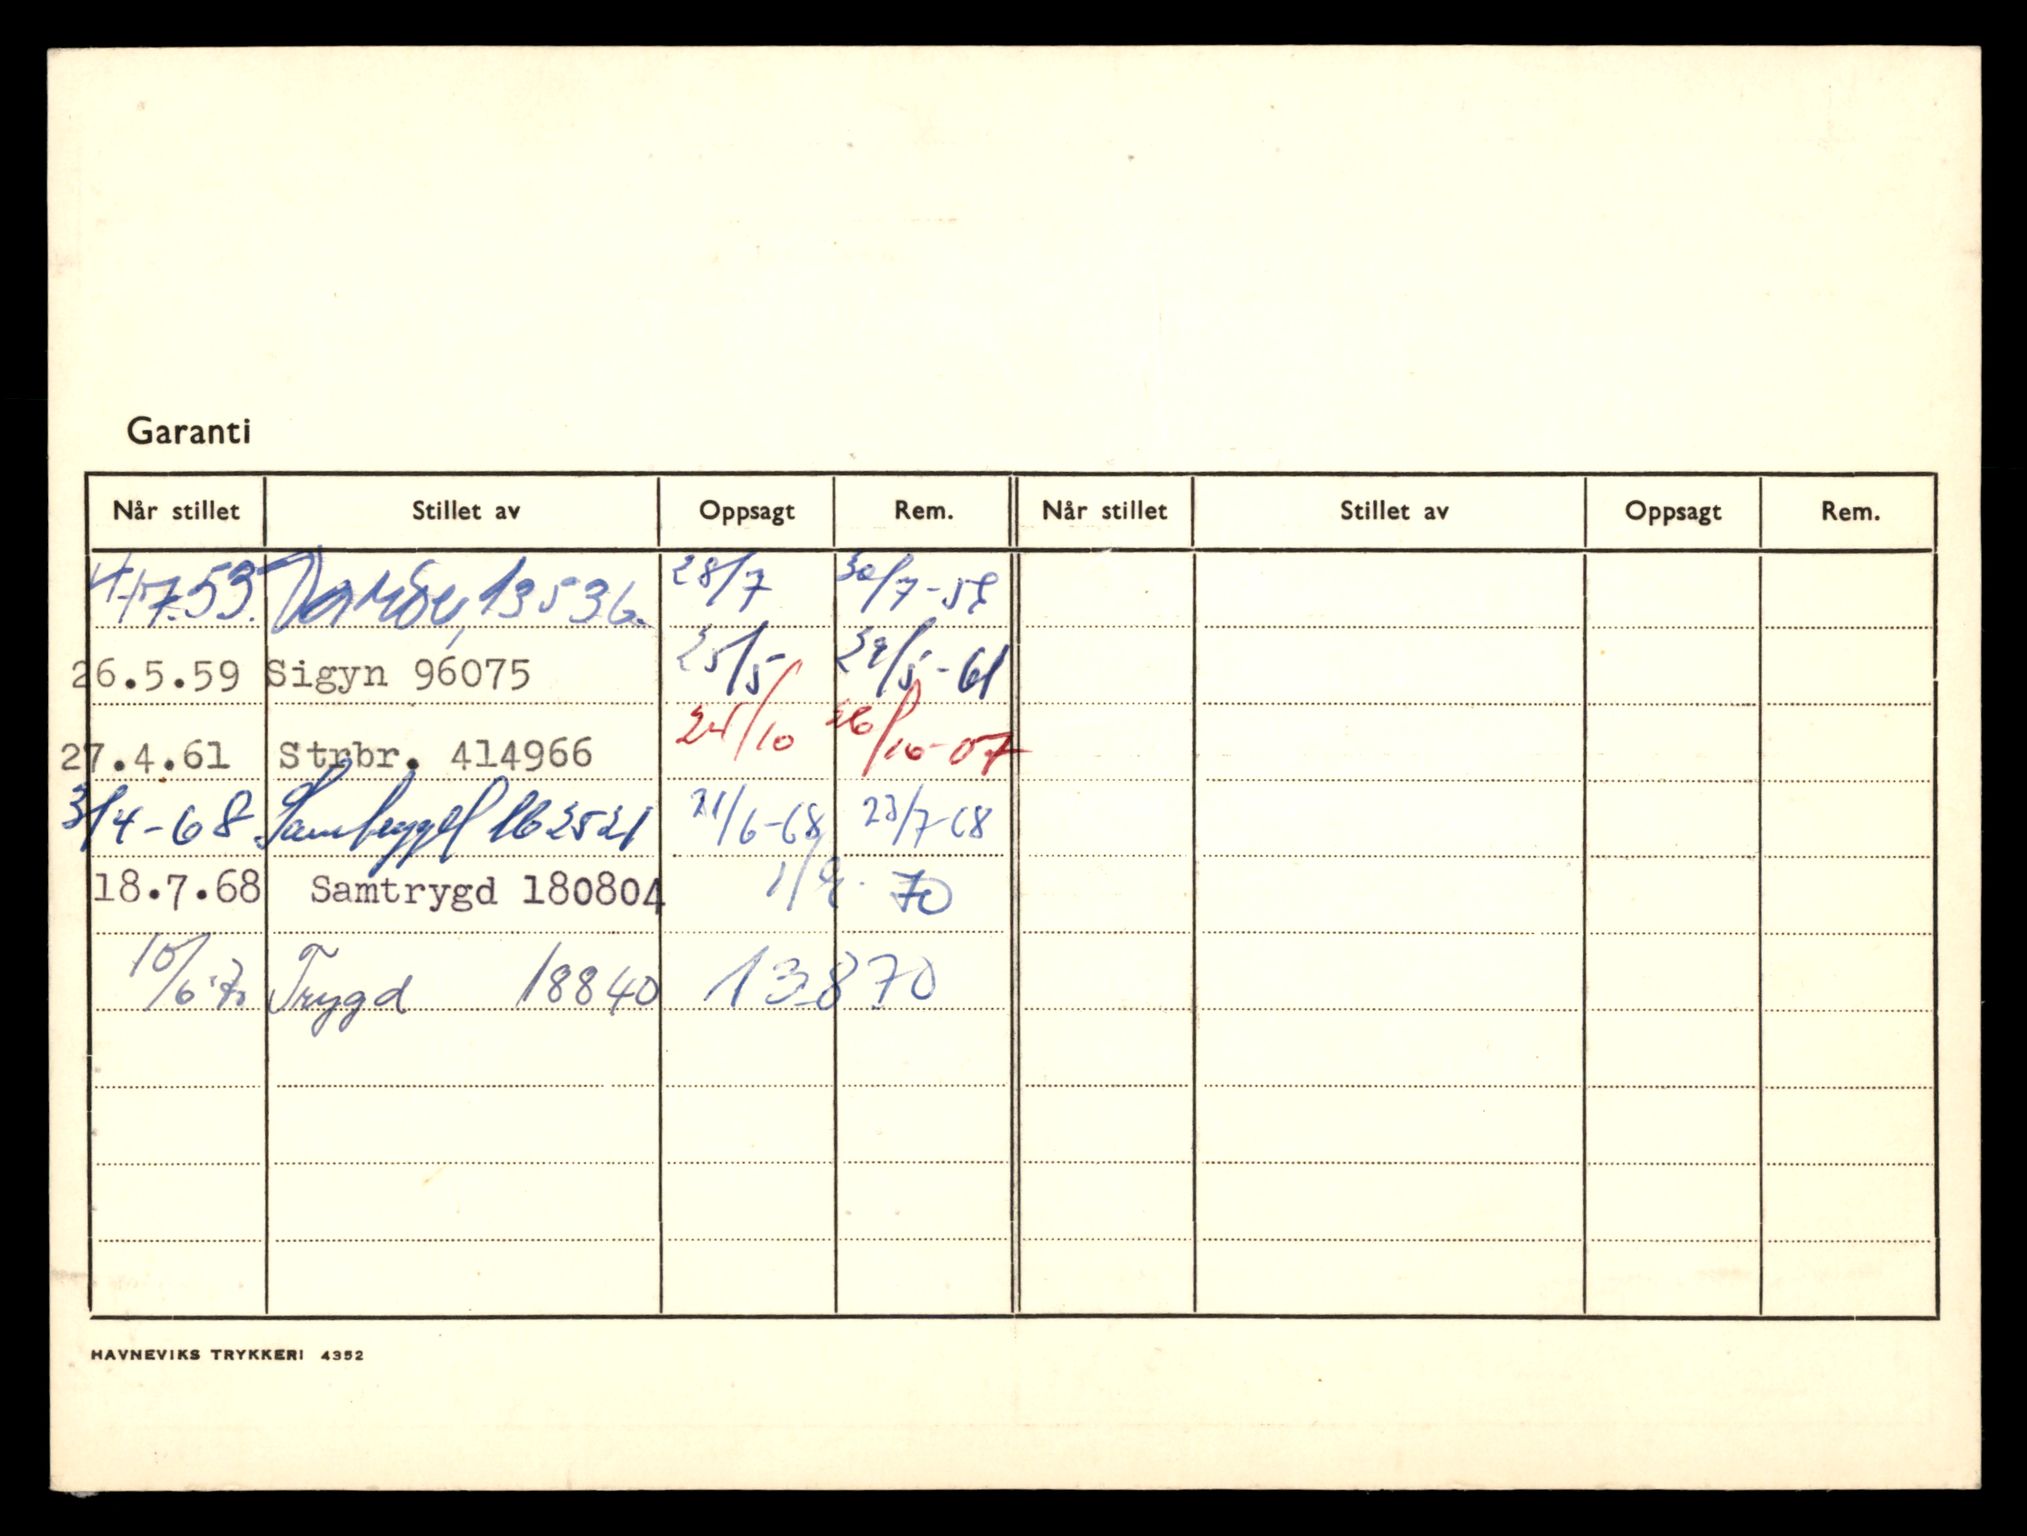 Garanti
Når stillet Stillet av Oppsagt Rem. Når stillet Stillet av Oppsagt Rem.
4/7.53. 13536. 28/7 30/7-58
26.5.59 Sigyn 96075 25/5 29/5-61
27.4.61 Strbr. 414966 24/10 26/10-67
3/4-68. Samtrygd 162521 21/6-68 23/7-68
18.7.68 Samtrygd 180804 1/9. 70
10/6.70 Trygd 18840 13870
HAVNEVIKS TRYKKERI 4352